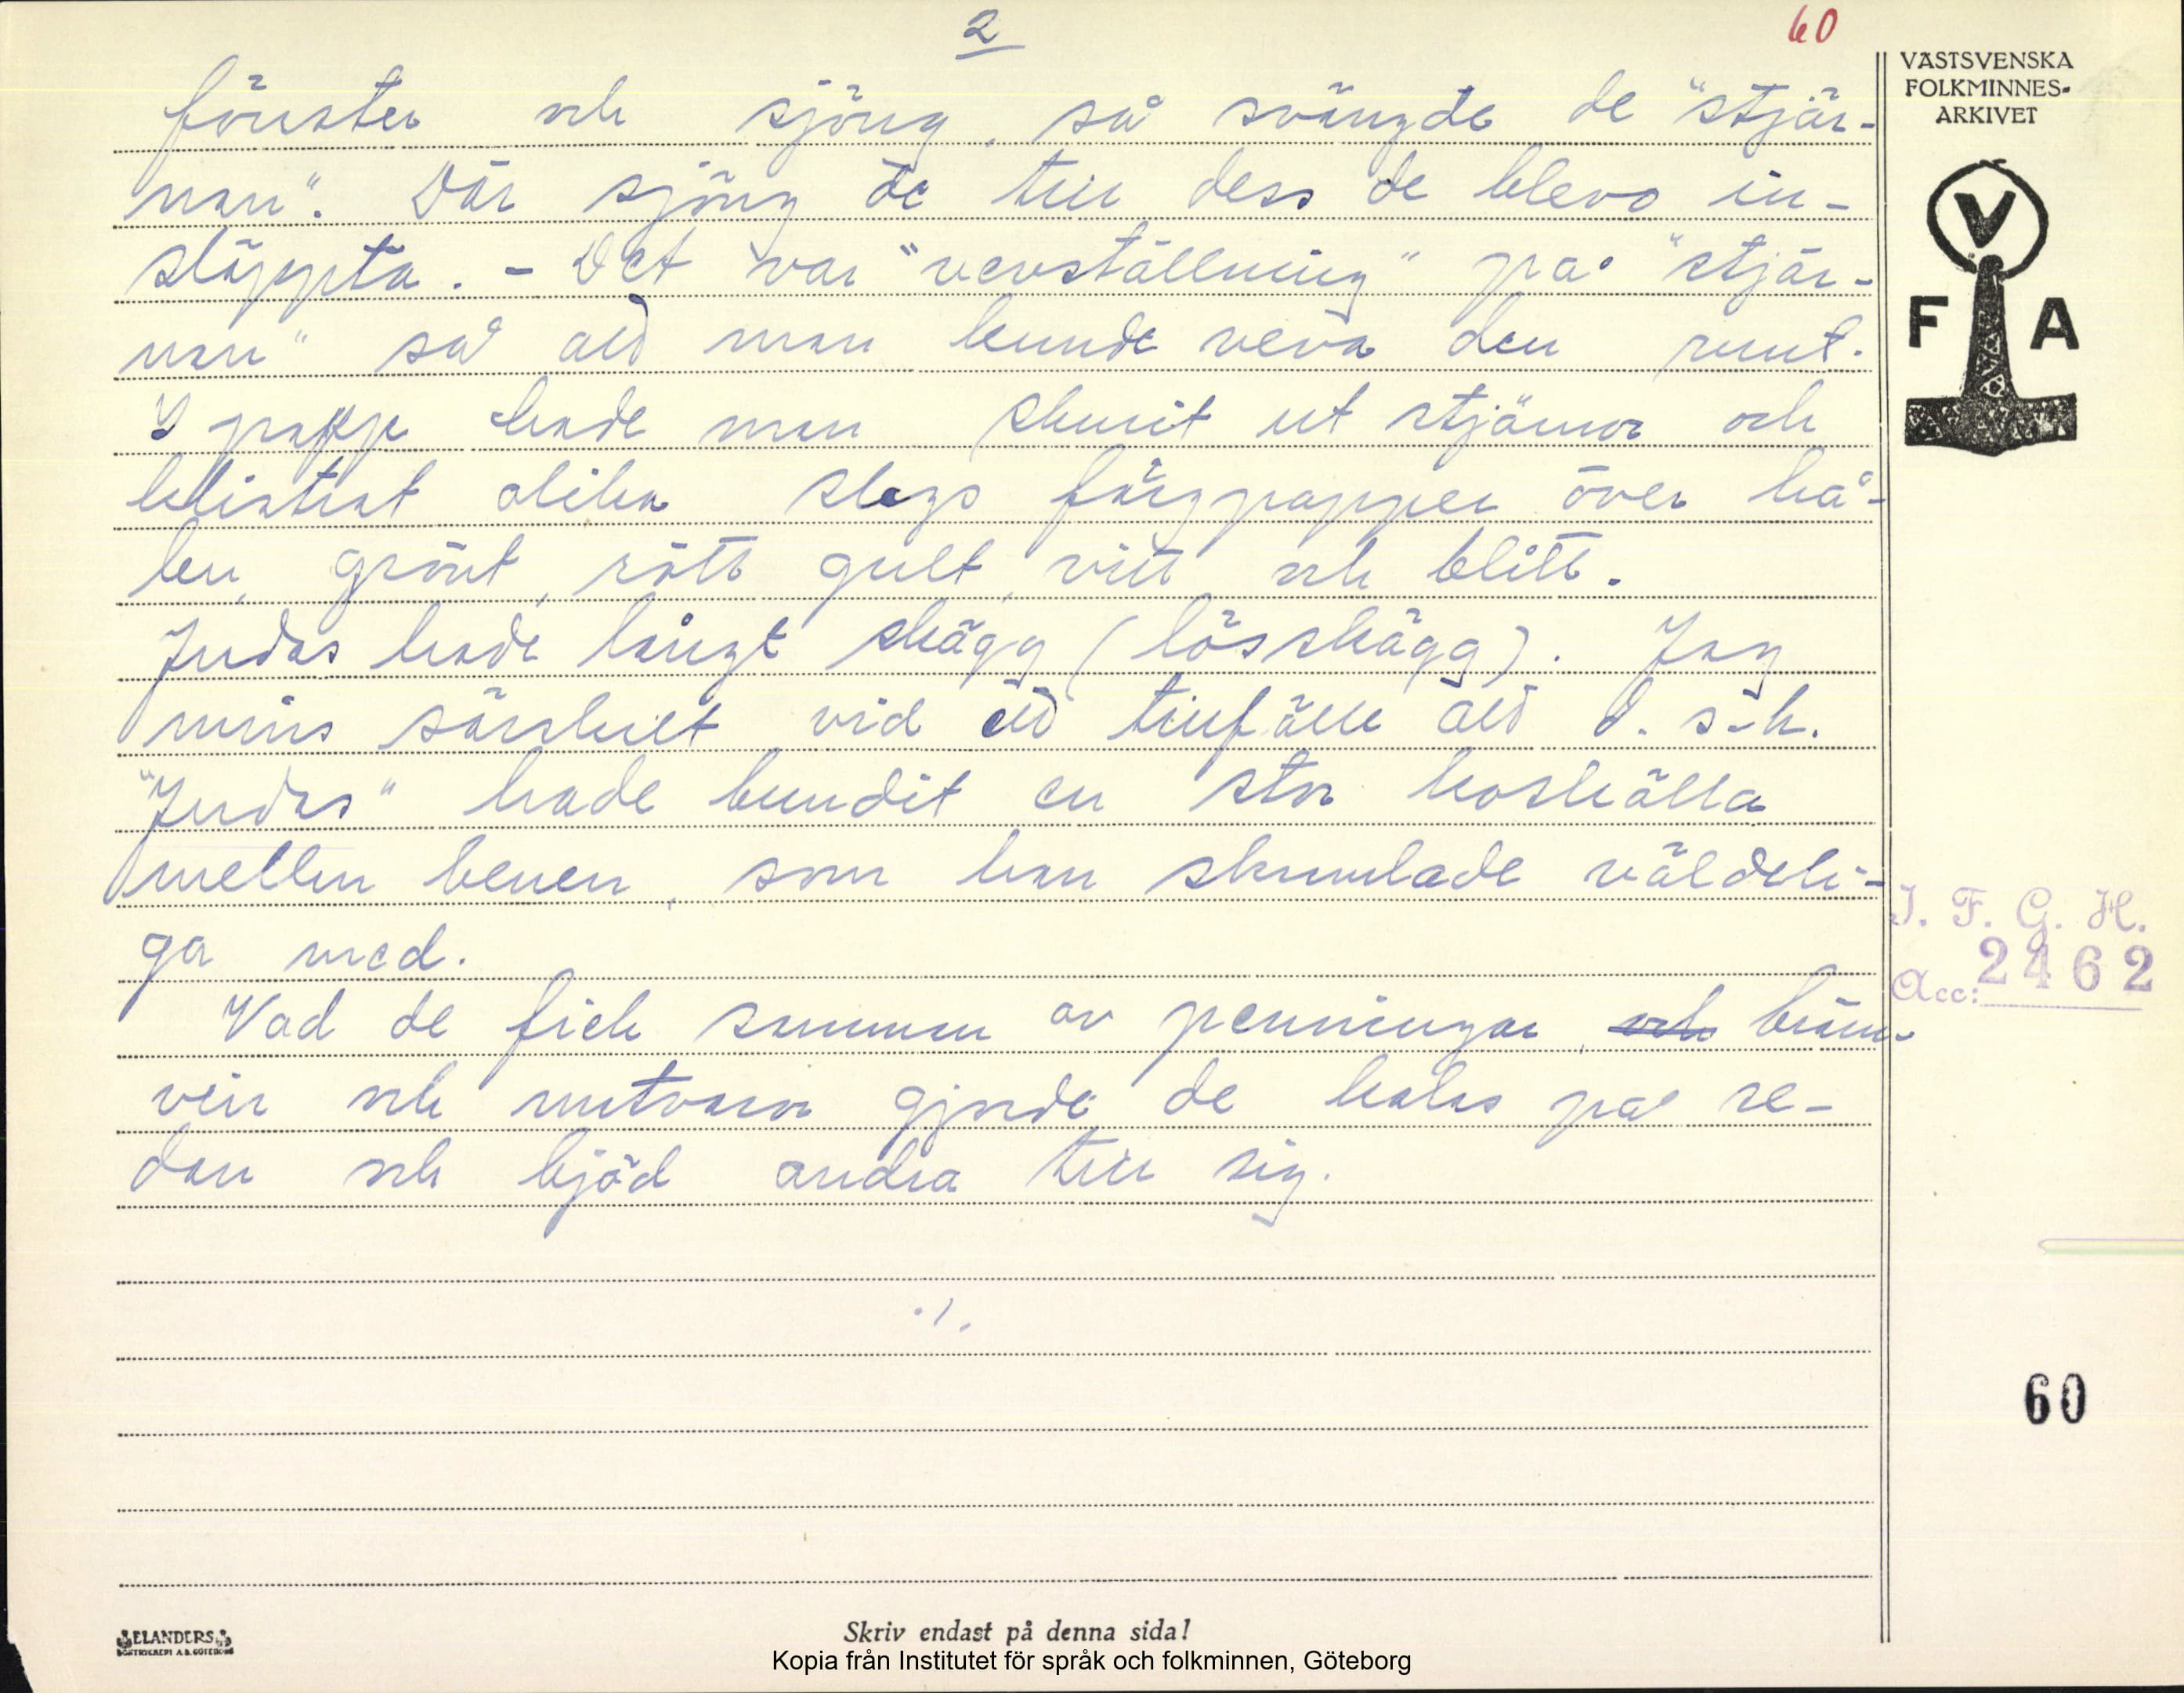 2
60
VÄSTSVENSKA
FOLKMINNES-
ARKIVET
V
F A
fönster och sjöng, så svängde de "stjär-
nan". Där sjöng de till dess de blevo in-
släppta. - Det var "vevställning" på "stjär-
nan" så att man kunde veva den runt.
I papp hade man skurit ut stjärnor och
klistrat olika slags färgpapper över hå-
len, grönt, rött gult, vitt och blått.
Judas hade långt skägg (lösskägg). Jag
mins särskilt vid ett tillfälle att d. s.k.
"Judas" hade bundit en stor koskälla
mellan benen, som han skramlade väldeli-
ga med.
Vad de fick samman av penningar, och bränn-
vin och matvaror gjorde de kalas på se-
dan och bjöd andra till sig.
./.
I. F. G. H.
Acc: 2462
60
ELANDERS
BOKTRYCKERI A.B. GÖTEBORG
Skriv endast på denna sida!
Kopia från Institutet för språk och folkminnen, Göteborg